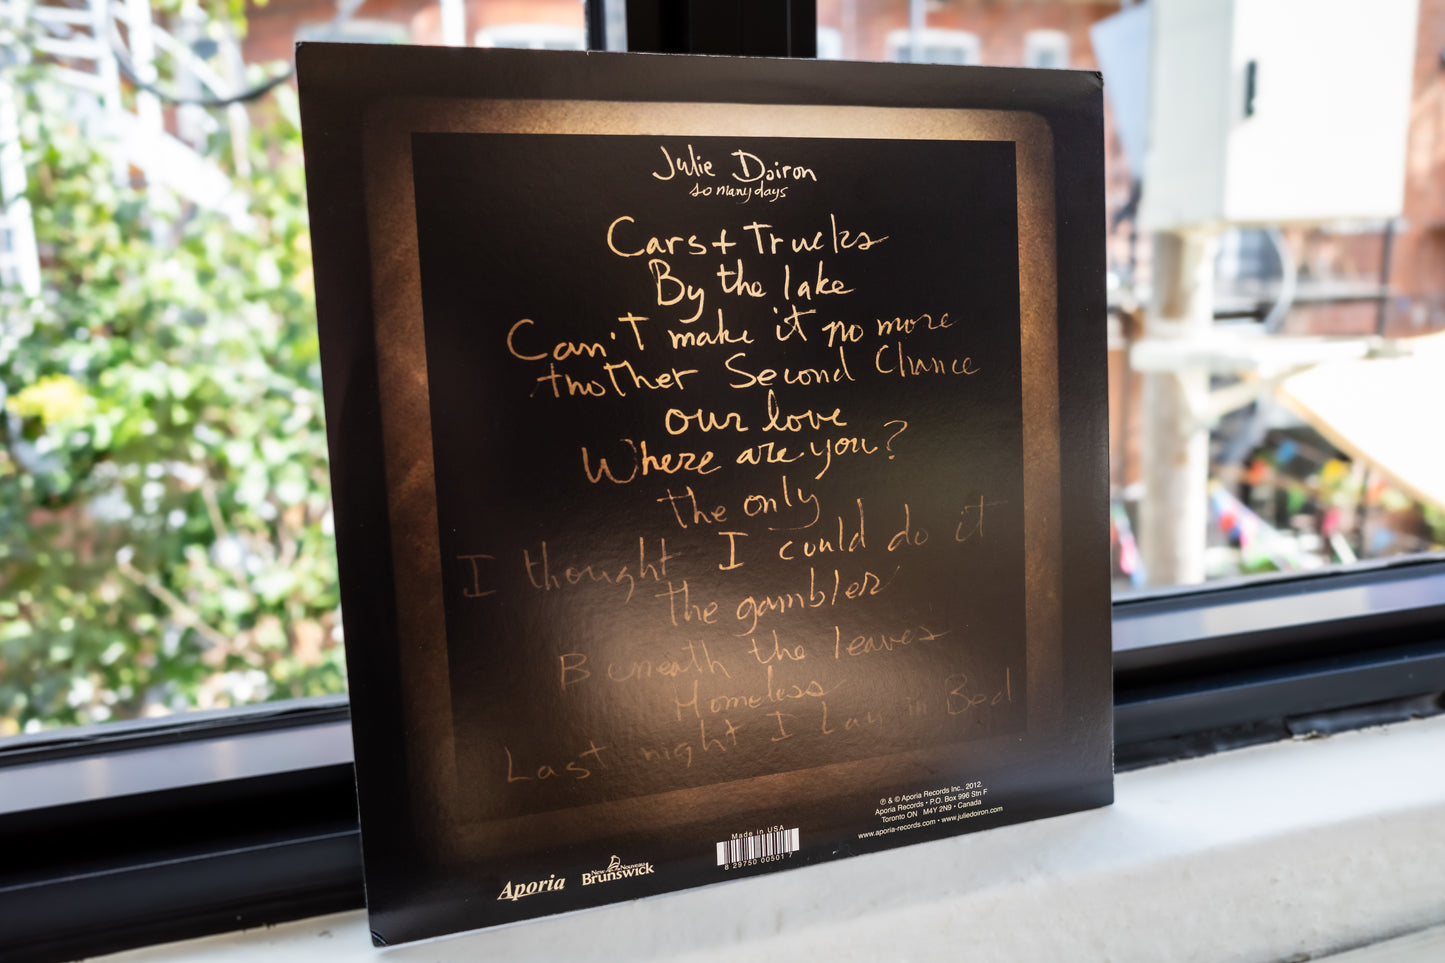 Julie Doiron
so many days
Cars + Trucks
By the lake
Can't make it no more
Another Second Chance
our love
Where are you?
the only
I thought I could do it
the gambler
Beneath the leaves
Homeless
Last night I Lay in Bed
℗ & © Aporia Records Inc., 2012.
Aporia Records • P.O. Box 996 Stn F
Toronto ON M4Y 2N9 • Canada
www.aporia-records.com • www.juliedoiron.com
Made in USA
8 29750 00501 7
Aporia
New Nouveau
Brunswick